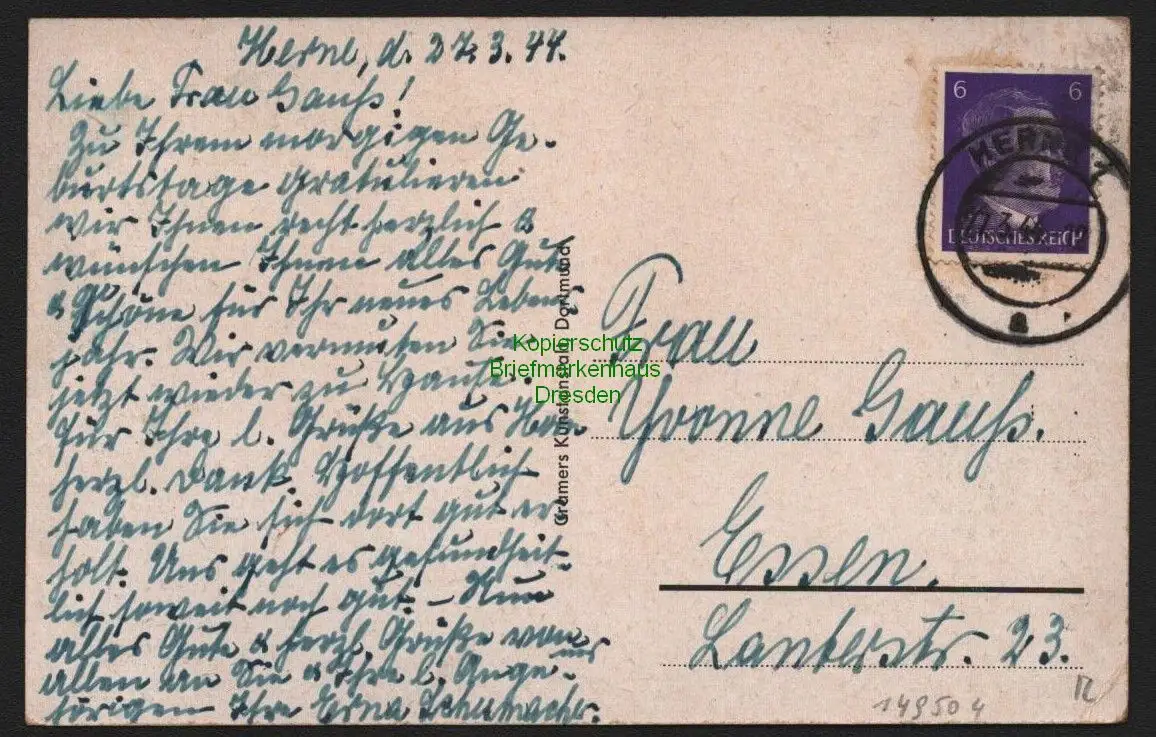 Herne, d. 27.3.44.
Liebe Frau Gauß!
Zu Ihrem morgigen Ge-
burtstage gratulieren
wir Ihnen recht herzlich &
wünschen Ihnen alles Gute
& Schöne für Ihr neues Lebens-
jahr. Wir vermuten Sie
jetzt wieder zu Hause.
Für Ihre l. Grüße aus
herzl. Dank. Hoffentlich
haben Sie sich dort gut er-
holt. Uns geht es gesundheit-
lich soweit noch gut. – Nun
alles Gute & herzl. Grüße von uns
allen an Sie & Ihre l. Ange-
hörigen Ihre Erna
Cramers Kunstanstalt, Dortmund
6 6
DEUTSCHES REICH
HERNE
27.3.44
a
Kopierschutz
Briefmarkenhaus
Dresden
Frau
Yvonne Gauß.
Essen.
23.
149504